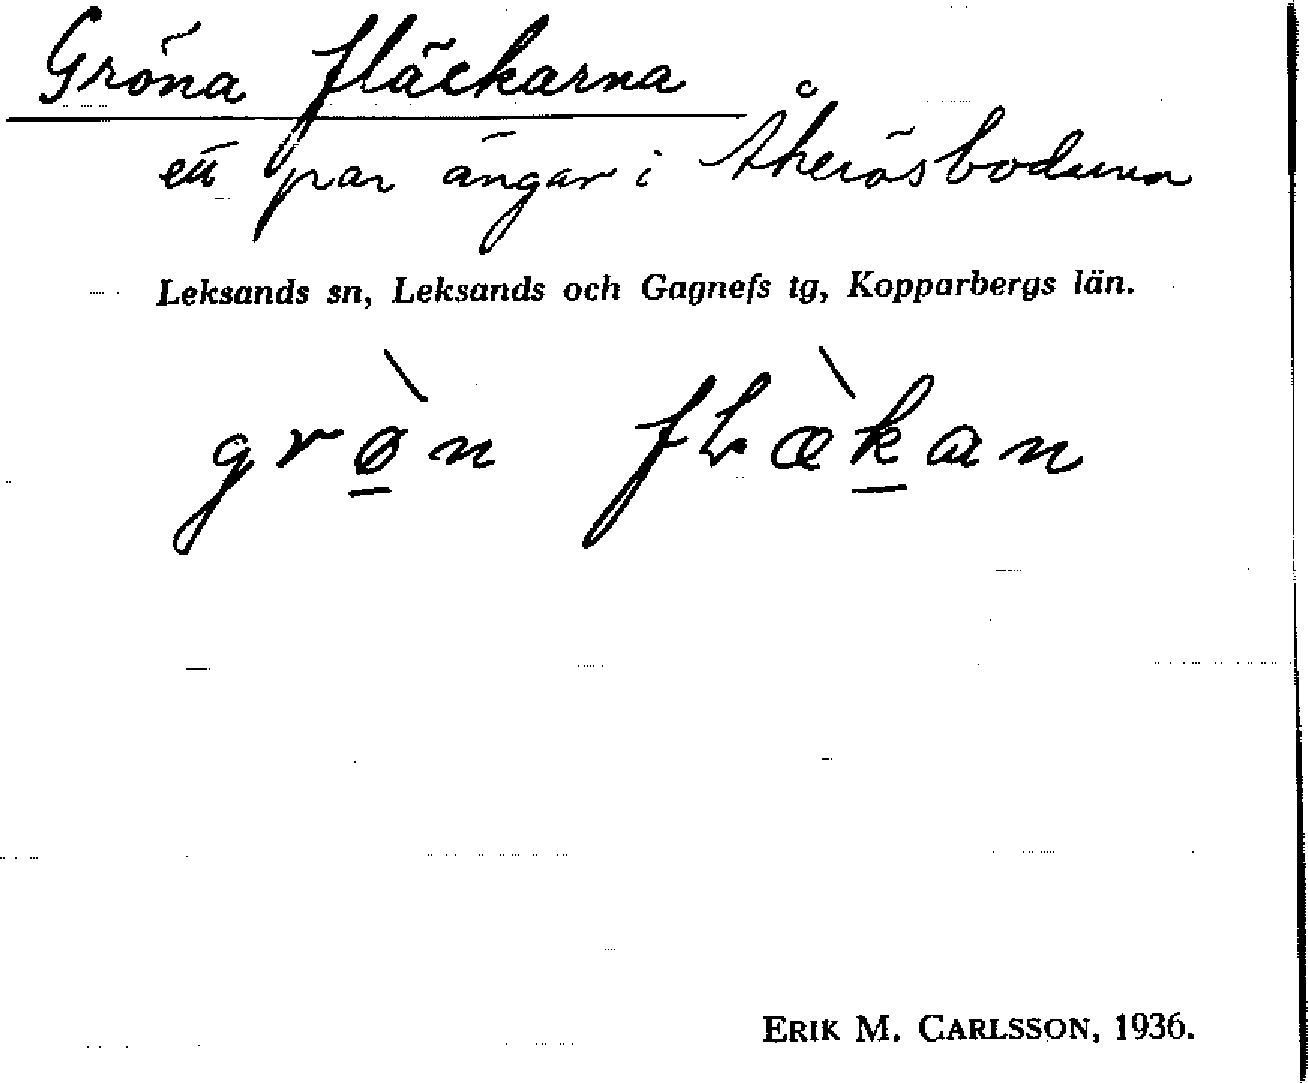 Gröna fläckarna
ett par ängar i Åheråsbodarna
Leksands sn, Leksands och Gagnefs tg, Kopparbergs län.
grø̲̀n flæ̀k̲an
ERIK M. CARLSSON, 1936.